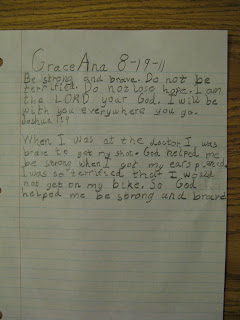 GraceAna 8-19-11
Be strong and brave. Do not be
terrified. Do not lose hope. I am
the LORD your God. I will be
with you everywhere you go.
Joshua 1:9
When I was at the doctor I was
brave to get my shots. God helped me
be strong when I got my ears
I was so terrified that I would
not get on my bike. So God
helped me be strong and brave